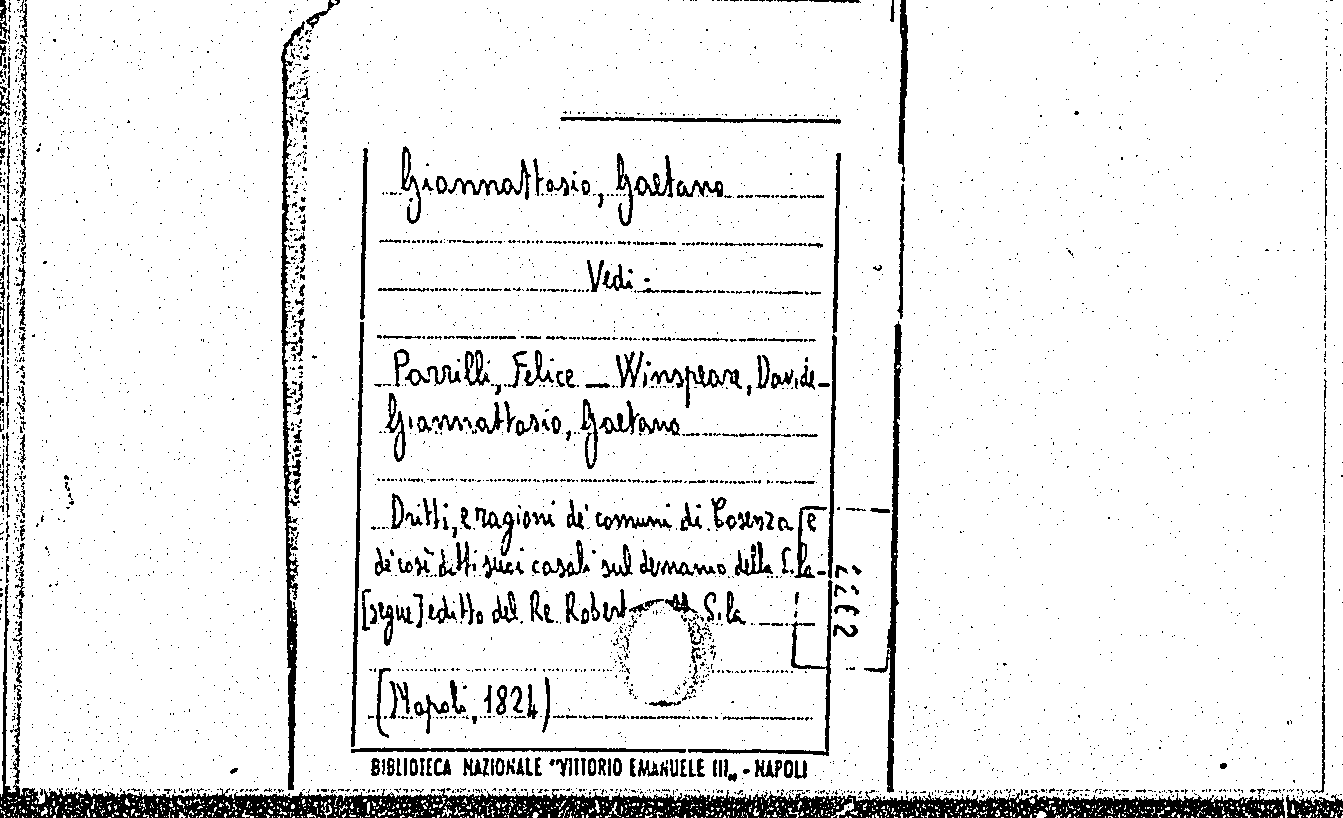 Giannattasio, Gaetano
Vedi:
Parrilli, Felice — Winspeare, Davide –
Giannattasio, Gaetano
Dritti, e ragioni de' comuni di Cosenza e
de' così detti suoi casali sul demanio della Sila –
[segue] editto del Re Robert Sila
(Napoli, 1824)
BIBLIOTECA NAZIONALE "VITTORIO EMANUELE III„ - NAPOLI